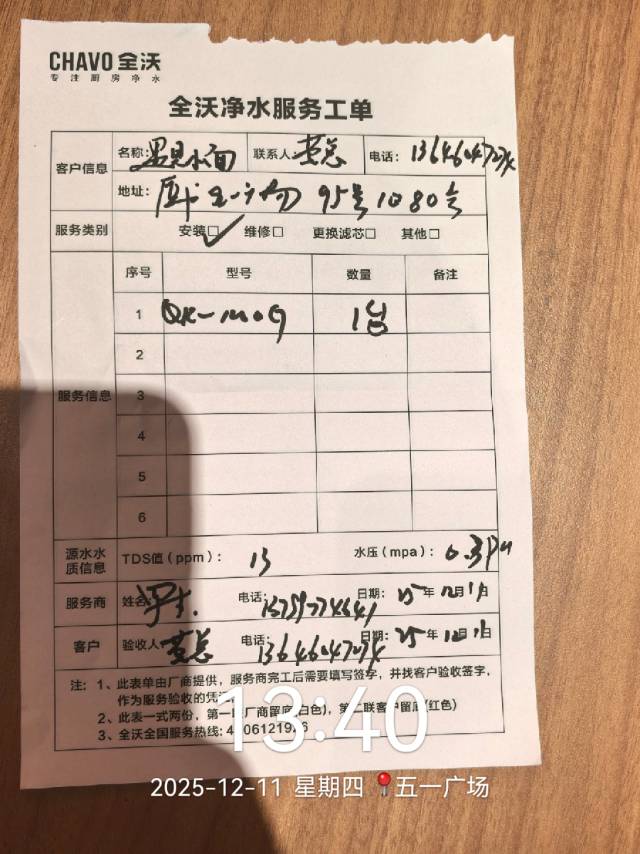 CHAVO 全沃
专注厨房净水
全沃净水服务工单
客户信息 名称: 遇见小面 联系人: 黄总 电话:
地址: 95号1080号
服务类别 安装□ ✓ 维修□ 更换滤芯□ 其他□
服务信息 序号 型号 数量 备注
1 1台
2
3
4
5
6
源水水质信息 TDS值(ppm): 13 水压(mpa): 0.3
服务商 姓名: 电话: 13759774641 日期: 25年12月11日
客户 验收人 黄总 电话: 日期: 25年12月11日
注: 1、此表单由厂商提供,服务商完工后需要填写签字,并找客户验收签字,
作为服务验收的凭
2、此表一式两份,第一联厂商留底(白色),第二联客户留底(红色)
3、全沃全国服务热线:
13:40
2025-12-11 星期四 📍五一广场